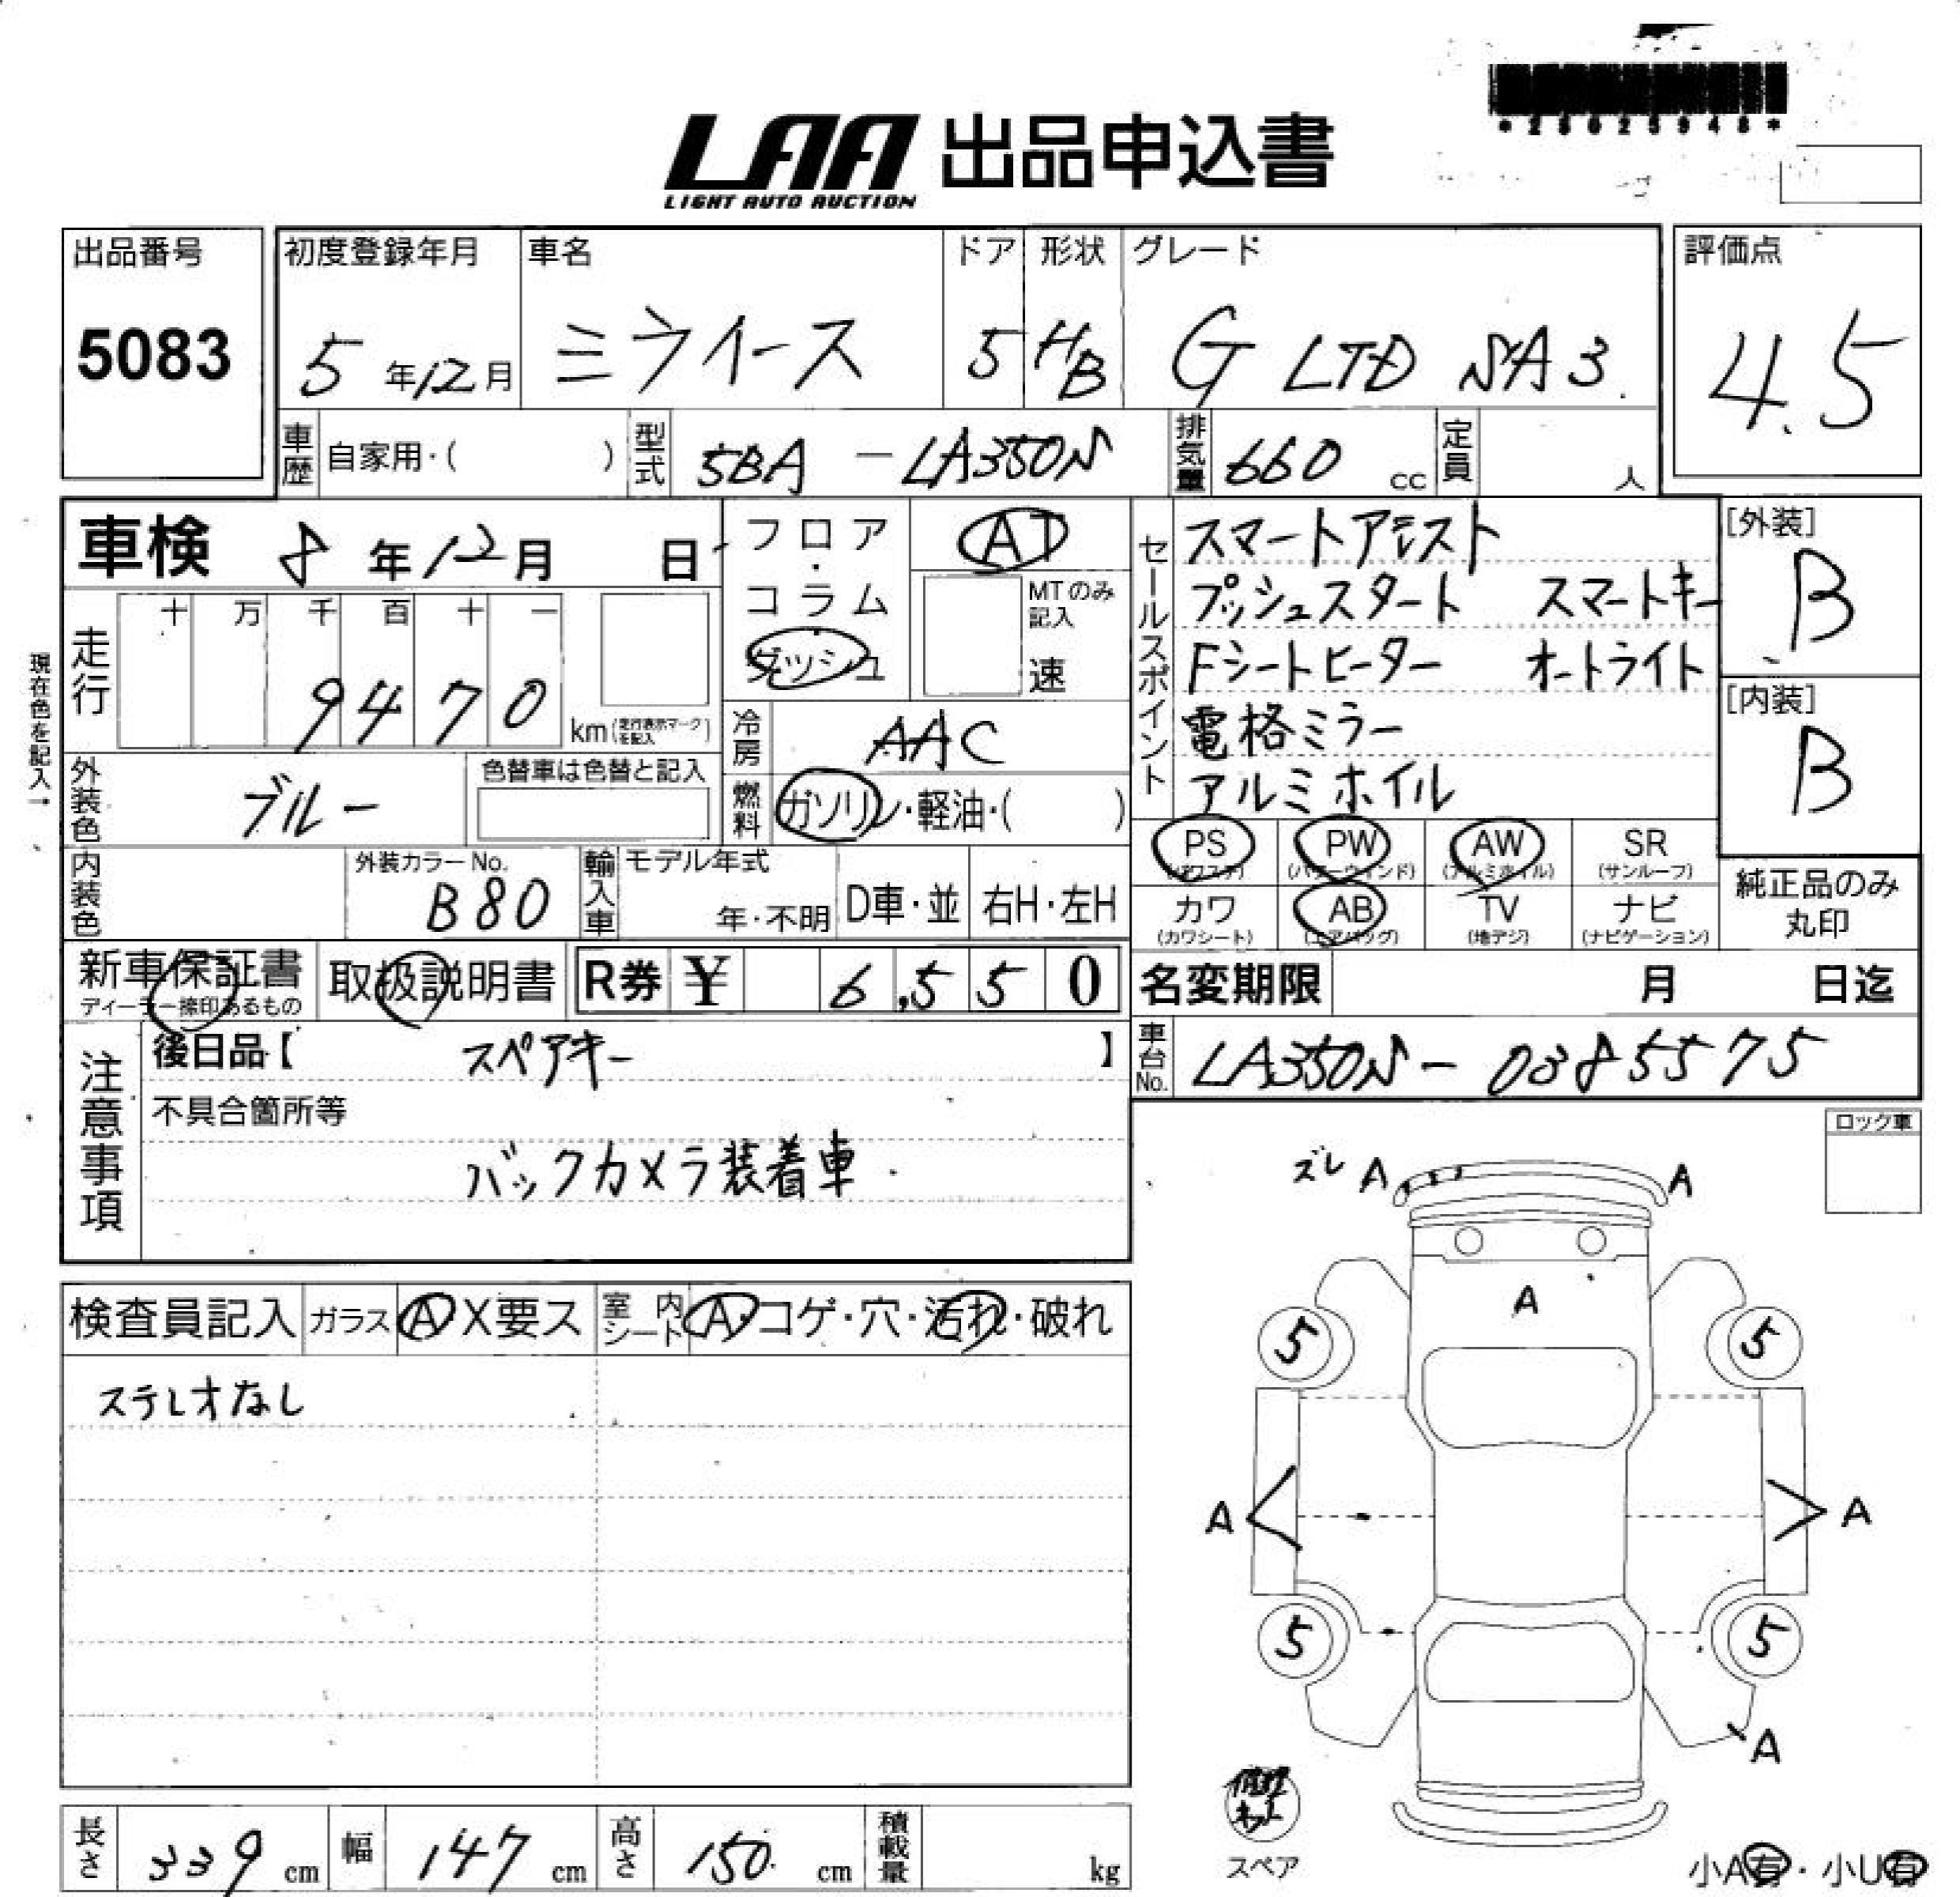 LAA 出品申込書
LIGHT AUTO AUCTION
出品番号
5083
初度登録年月
5年12月
車名
ミライース
ドア
5
形状
HB
グレード
G LTD SA3
評価点
4.5
車歴 自家用・( )
型式 5BA - LA350S
排気量 660 cc
定員 人
車検 8年12月 日
フロア・コラム ダッシュ
AT
MTのみ記入
速
走行 十 万 千 百 十 一
9470
km(走行表示マークを記入)
現在色を記入→
冷房 AAC
燃料 ガソリン・軽油・( )
外装色 ブルー
色替車は色替と記入
内装色
外装カラーNo.
B80
輸入車
モデル年式
年・不明
D車・並
右H・左H
セールスポイント
スマートアシスト
プッシュスタート スマートキー
Fシートヒーター オートライト
電格ミラー
アルミホイル
[外装]
B
[内装]
B
PS
(パワステ)
PW
(パワーウィンド)
AW
(アルミホイル)
SR
(サンルーフ)
カワ
(カワシート)
AB
(エアバッグ)
TV
(地デジ)
ナビ
(ナビゲーション)
純正品のみ
丸印
新車保証書
ディーラー捺印あるもの
取扱説明書
R券 ¥ 6,550
名変期限 月 日迄
車台No. LA350S - 0385575
注意事項
後日品【 スペアキー 】
不具合箇所等
バックカメラ装着車
ロック車
ズレ A A
A
5 5
A A
5 5
A
検査員記入
ガラス A X要ス
室内シート A・コゲ・穴・汚れ・破れ
ステレオなし
長さ 339 cm
幅 147 cm
高さ 150 cm
積載量 kg
スペア
小A有・小U有